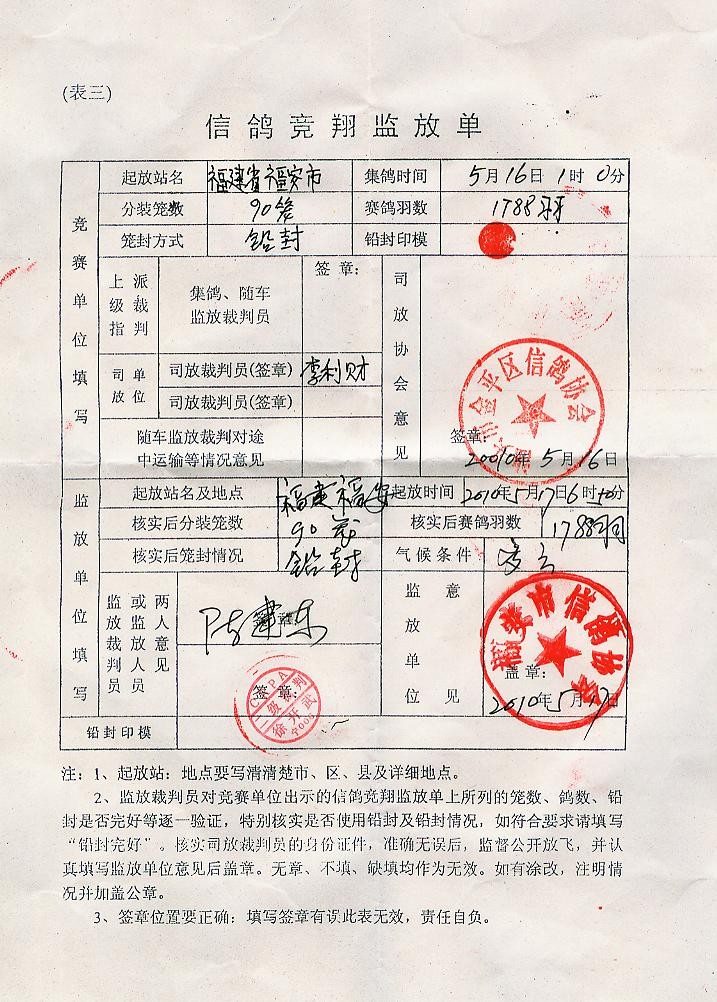 (表三)
信鸽竞翔监放单
竞赛单位填写
起放站名 福建省福安市 集鸽时间 5月16日1时0分
分装笼数 90笼 赛鸽羽数 1788羽
笼封方式 铅封 铅封印模
上级指派裁判 集鸽、随车监放裁判员 签章: 司放协会意见
司放单位 司放裁判员(签章) 李利财
司放裁判员(签章)
市金平区信鸽协会
随车监放裁判对途中运输等情况意见 签章: 2010年5月16日
监放单位填写
起放站名及地点 福建福安 起放时间 2010年5月17日6时50分
核实后分装笼数 90笼 核实后赛鸽羽数 1788羽
核实后笼封情况 铅封 气候条件 多云
监放裁判员或监放人员两人意见 签章: 监放单位意见
福安市信鸽协会
盖章:
2010年5月17日
签章:
CRPA
二级裁判
徐开武
铅封印模
注:1、起放站:地点要写清清楚市、区、县及详细地点。
2、监放裁判员对竞赛单位出示的信鸽竞翔监放单上所列的笼数、鸽数、铅
封是否完好等逐一验证,特别核实是否使用铅封及铅封情况,如符合要求请填写
“铅封完好”。核实司放裁判员的身份证件,准确无误后,监督公开放飞,并认
真填写监放单位意见后盖章。无章、不填、缺填均作为无效。如有涂改,注明情
况并加盖公章。
3、签章位置要正确:填写签章有误此表无效,责任自负。